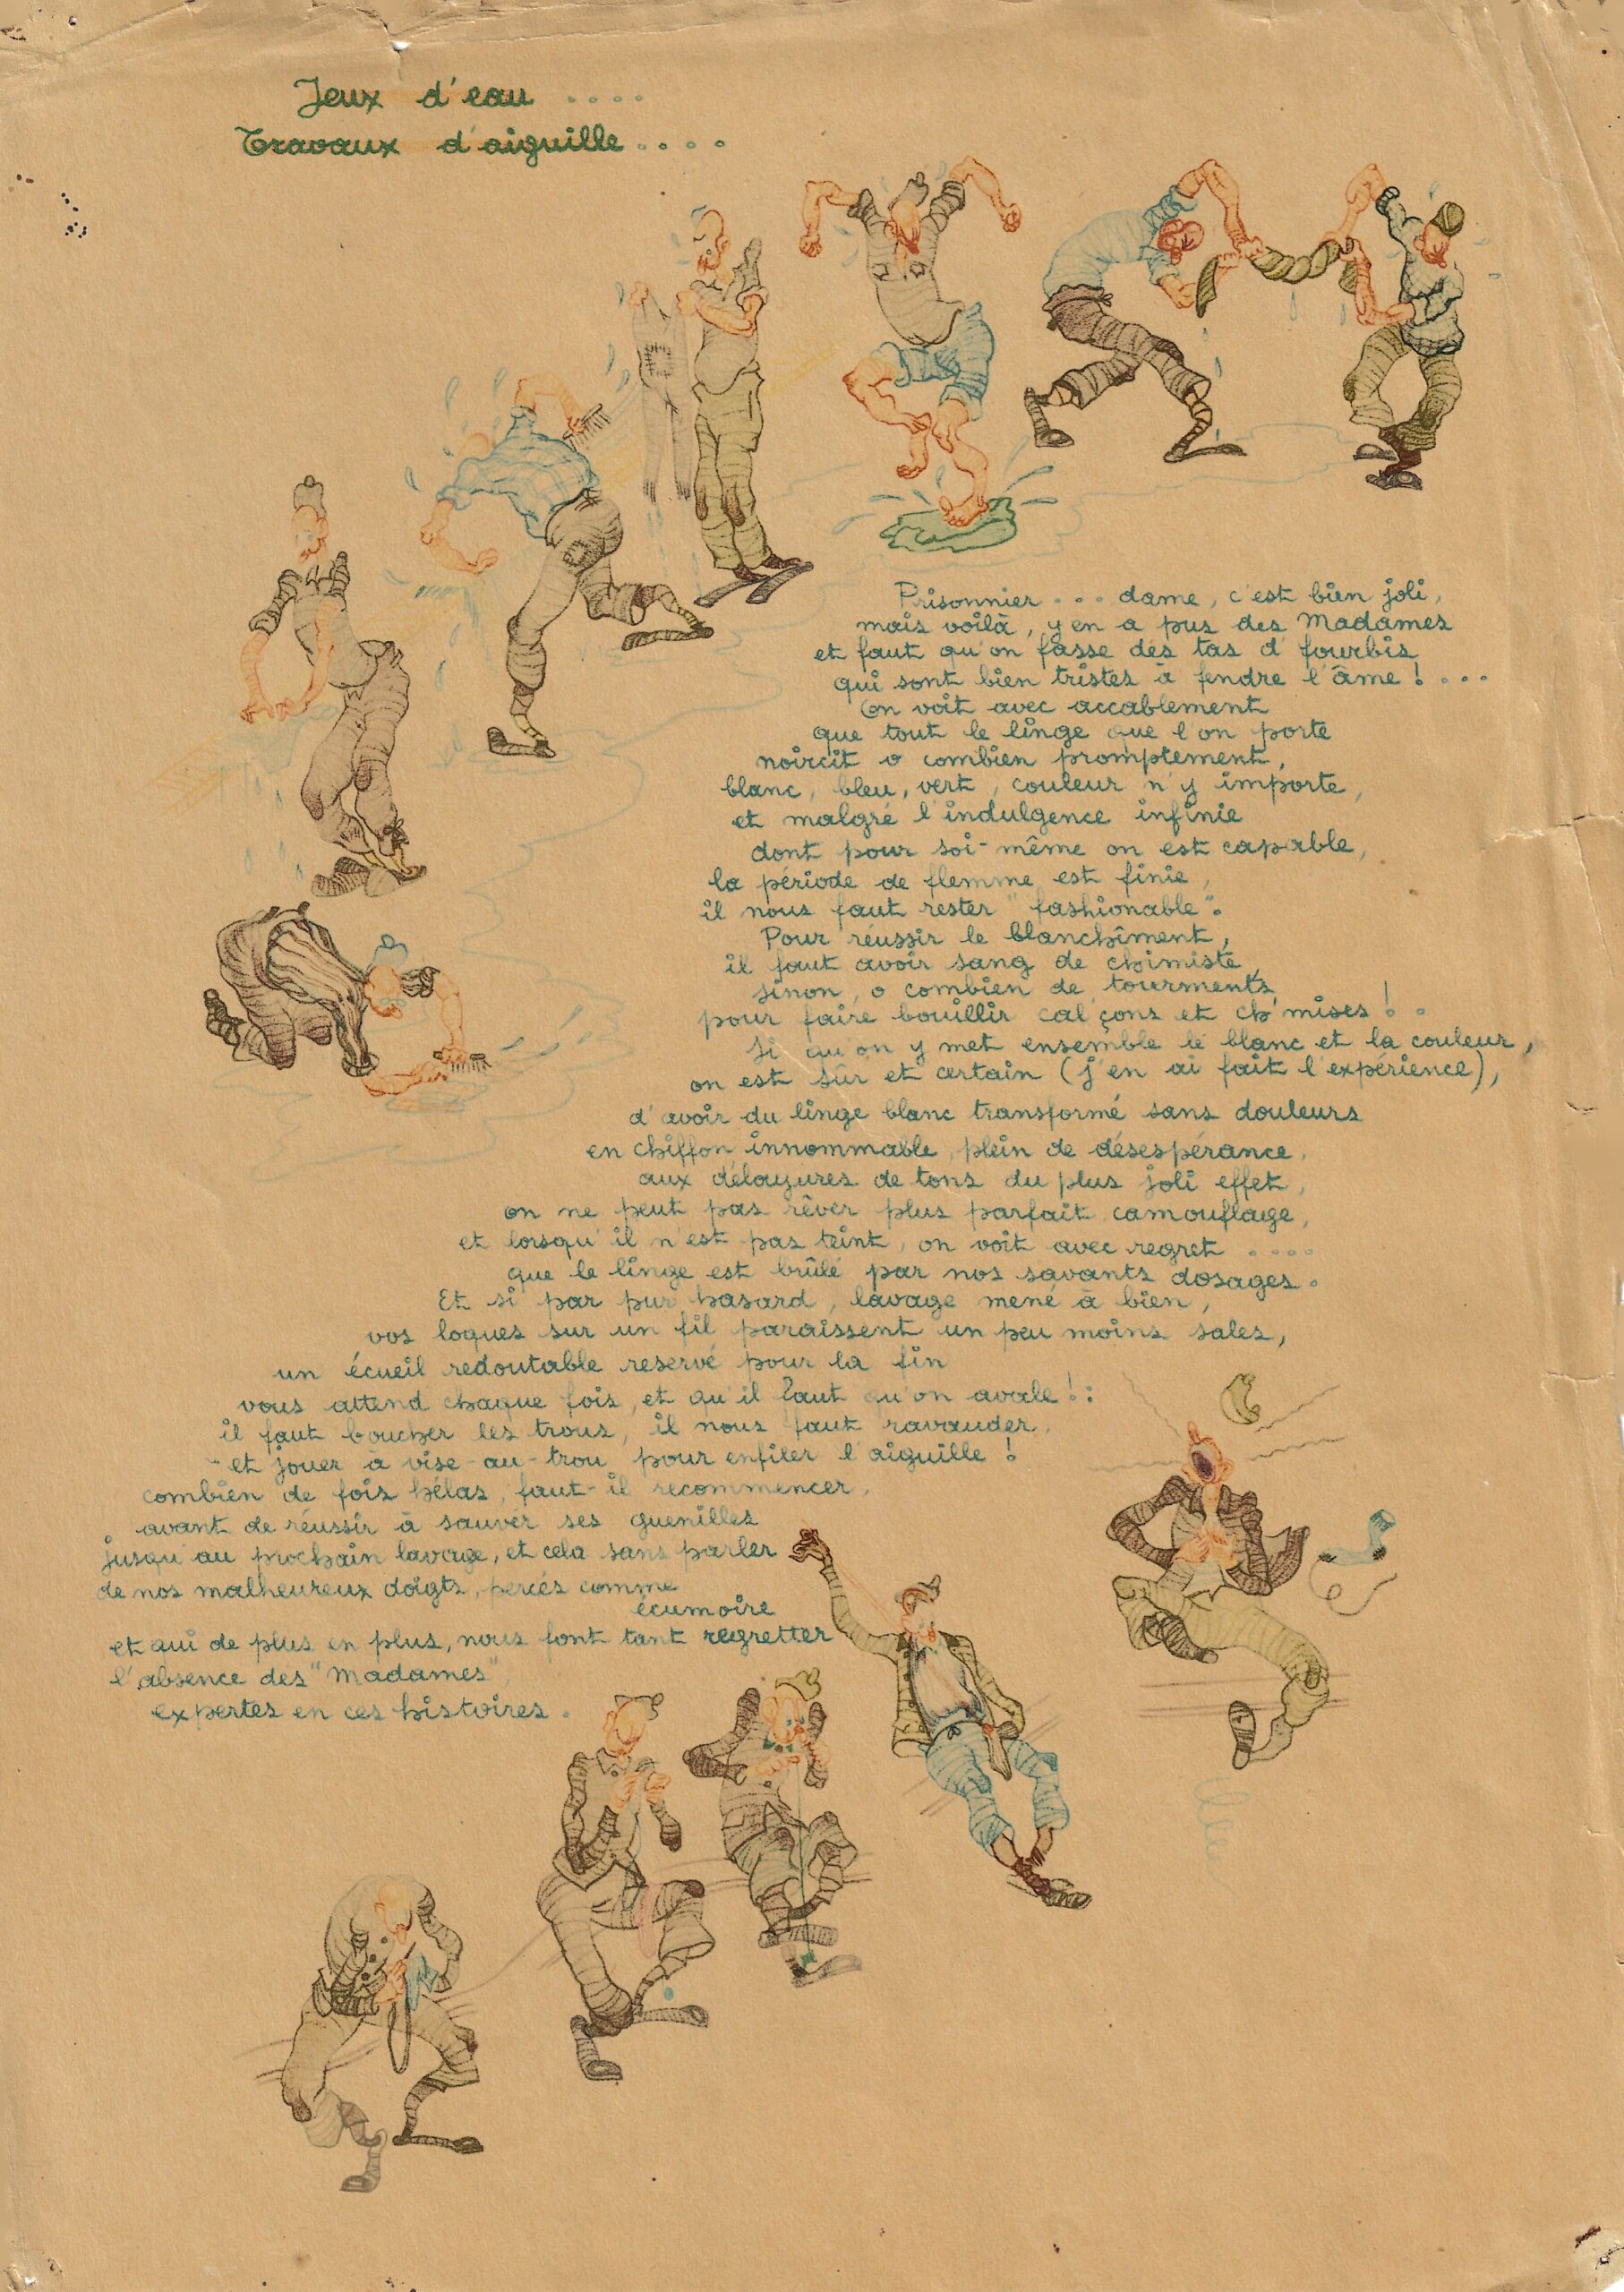 Jeux d'eau ....
Travaux d'aiguille ....
Prisonnier ... dame, c'est bien joli,
mais voilà, y en a pus des Madames
et faut qu'on fasse des tas d'fourbis
qui sont bien tristes à fendre l'âme ! ...
On voit avec accablement
que tout le linge que l'on porte
noircit o combien promptement,
blanc, bleu, vert, couleur n'y importe,
et malgré l'indulgence infinie
dont pour soi-même on est capable,
la période de flemme est finie,
il nous faut rester "fashionable".
Pour réussir le blanchîment,
il faut avoir sang de chimiste,
sinon, o combien de tourments,
pour faire bouillir cal'çons et ch'mises ! .
Si qu'on y met ensemble le blanc et la couleur,
on est sûr et certain (j'en ai fait l'expérience),
d'avoir du linge blanc transformé sans douleurs
en chiffon innommable, plein de désespérance,
aux délayures de tons du plus joli effet,
on ne peut pas rêver plus parfait camouflage,
et lorsqu'il n'est pas teint, on voit avec regret ....
que le linge est brûlé par nos savants dosages.
Et si par pur hasard, lavage mené à bien,
vos loques sur un fil paraissent un peu moins sales,
un écueil redoutable reservé pour la fin
vous attend chaque fois, et qu'il faut qu'on avale ! :
il faut boucher les trous, il nous faut ravauder,
et jouer à vise-au-trou pour enfiler l'aiguille !
combien de fois hélas, faut-il recommencer,
avant de réussir à sauver ses guenilles
jusqu'au prochain lavage, et cela sans parler
de nos malheureux doigts, percés comme
écumoire
et qui de plus en plus, nous font tant regretter
l'absence des "Madames",
expertes en ces histoires.